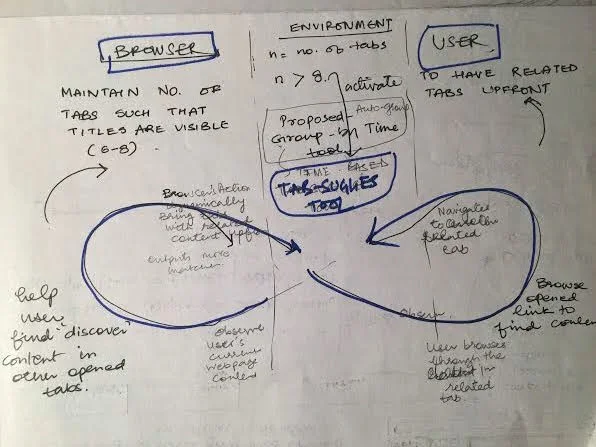 BROWSER
MAINTAIN NO. OF
TABS SUCH THAT
TITLES ARE VISIBLE
(6-8).
ENVIRONMENT
n = no. of tabs
n > 8.
activate
Proposed - Auto-Group
Group-by Time
tool
TIME BASED
TAB-SUGGES
TOOL
USER
TO HAVE RELATED
TABS UPFRONT
Browser's Action
Dynamically
Bring tabs
with related
content upfr
Outputs more
Navigates
to
Related
tab
help
user
find "discover"
content in
other opened
tabs.
Observe
User's
current
webpage
content
Observe
User browses
through the
in
related
tab.
Browse
opened
link to
find content